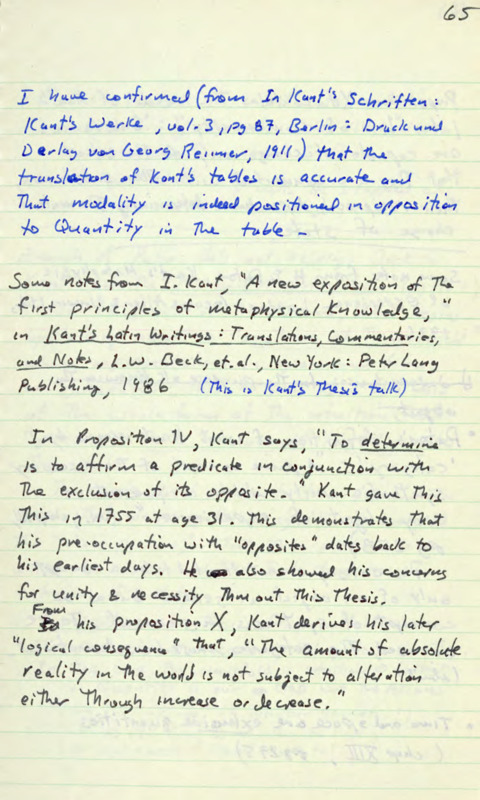 65
I have confirmed (from In Kant's Schriften:
Kant's Werke, vol. 3, pg 87, Berlin: Druck und
Verlag von Georg Reimer, 1911) that the
translation of Kant's tables is accurate and
That modality is indeed positioned in opposition
to Quantity in The table -
Some notes from I. Kant, "A new exposition of The
first principles of metaphysical Knowledge,"
in Kant's Latin Writings: Translations, Commentaries,
and Notes, L.W. Beck, et. al., New York: Peter Lang
Publishing, 1986 (This is Kant's Thesis talk)
In Proposition IV, Kant says, "To determine
is to affirm a predicate in conjunction with
The exclusion of its opposite." Kant gave This
This in 1755 at age 31. This demonstrates that
his pre-occupation with "opposites" dates back to
his earliest days. He also showed his concerns
for unity & necessity Thru out This Thesis.
From his proposition X, Kant derives his later
"logical consequence" that, "The amount of absolute
reality in The world is not subject to alteration
either Through increase or decrease."